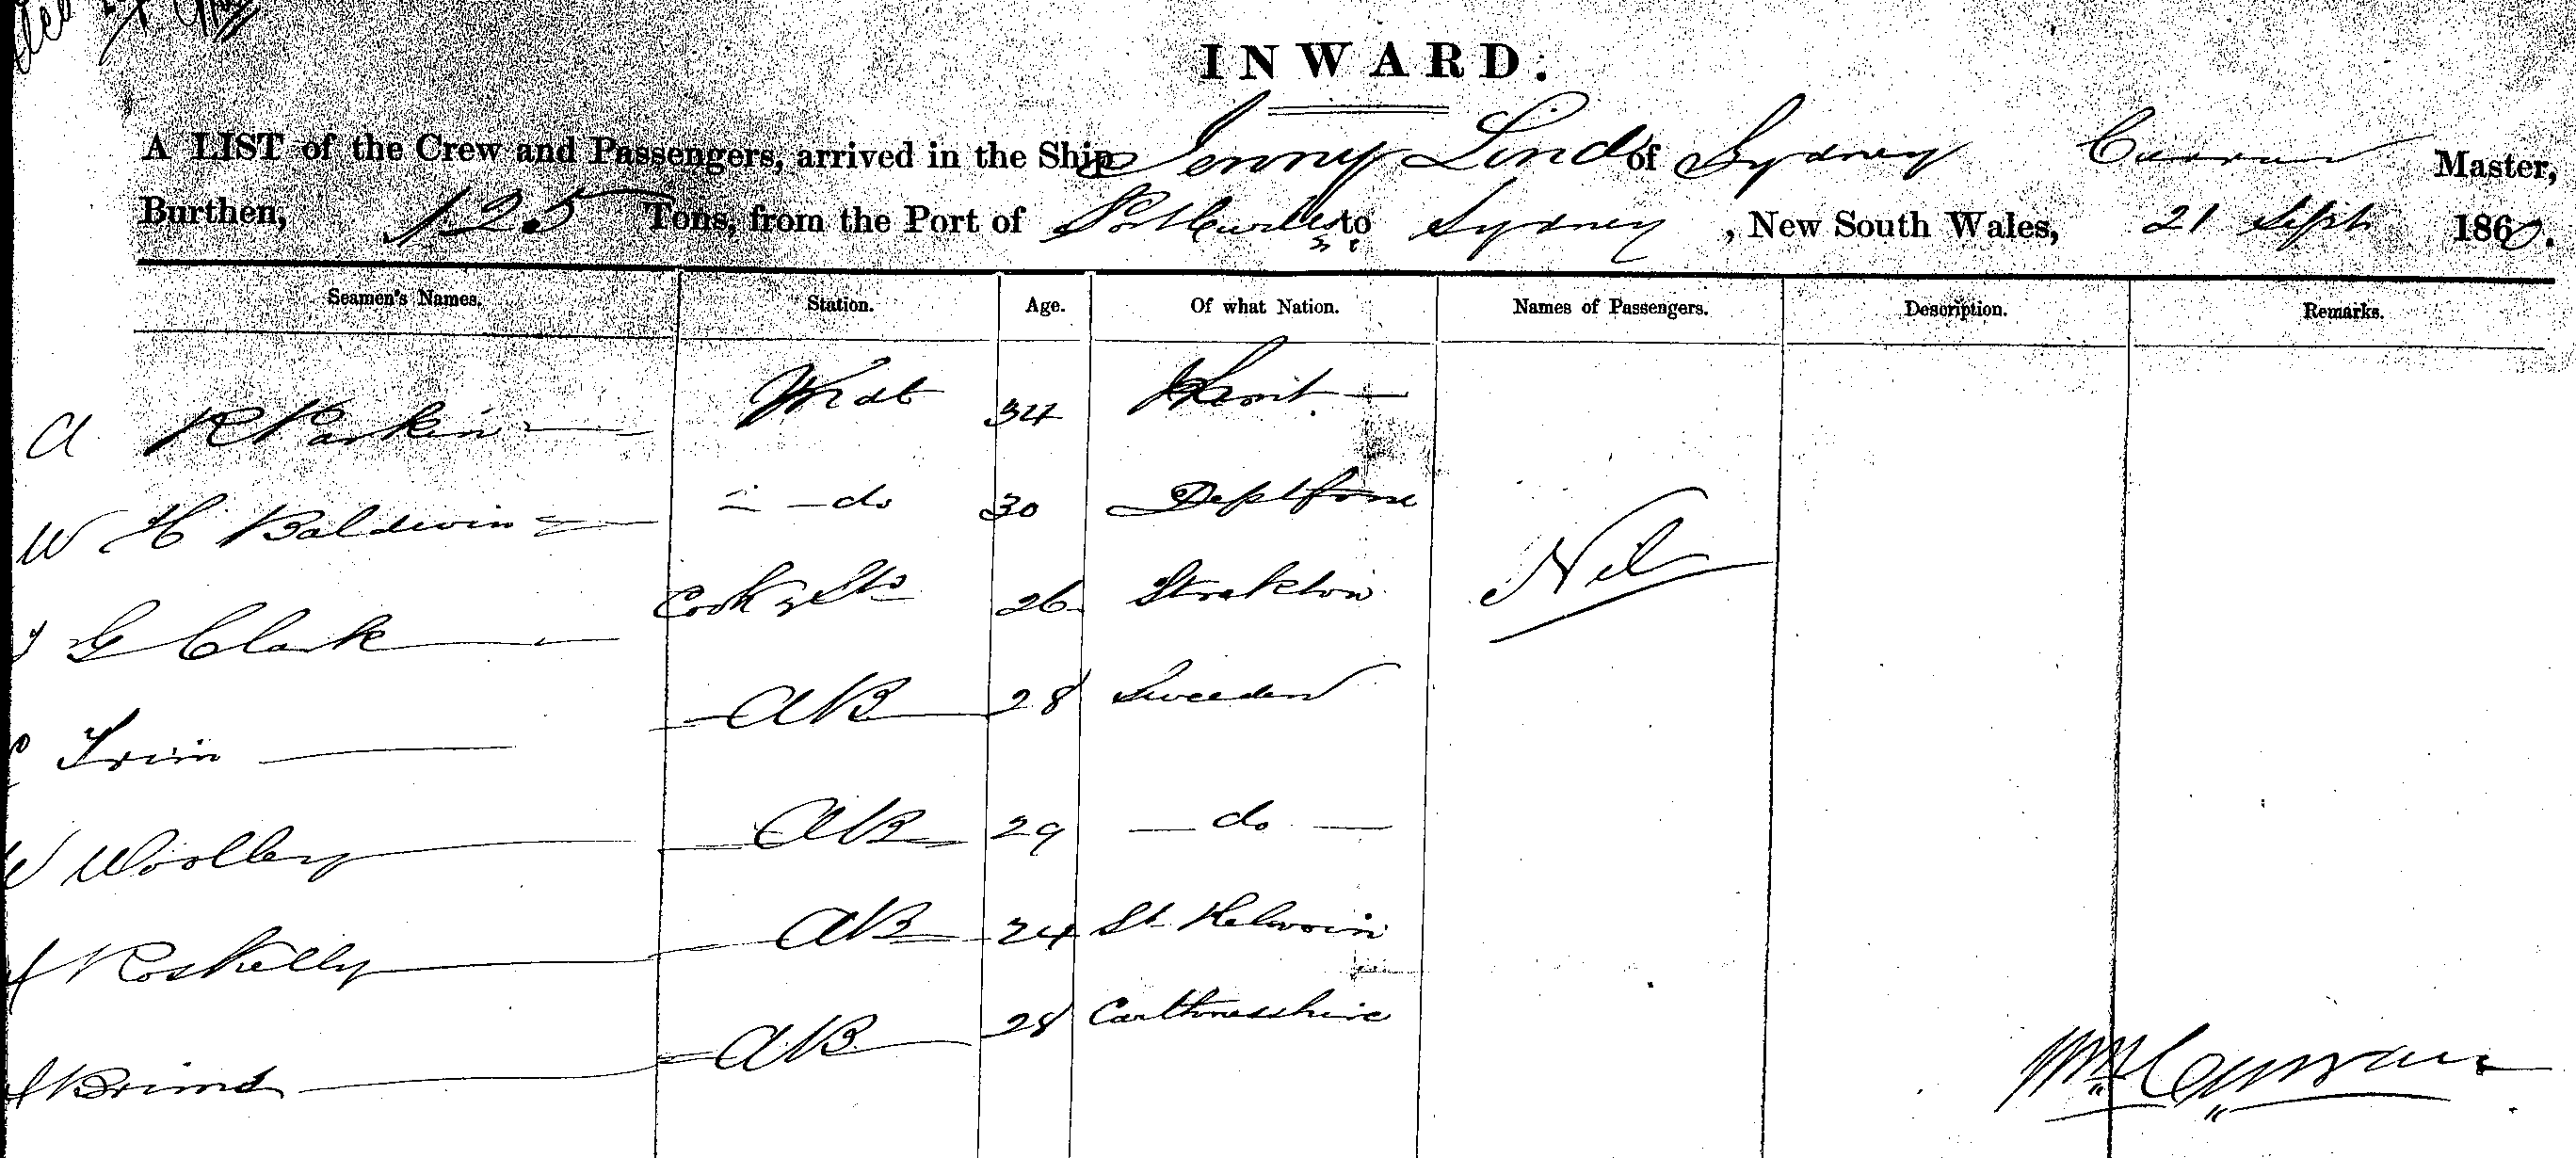 INWARD.
A LIST of the Crew and Passengers, arrived in the Ship Jenny Lind of Sydney Curran Master,
Burthen, 125 Tons, from the Port of to Sydney, New South Wales, 21 Sept 1860.
Seamen's Names. Station. Age. Of what Nation. Names of Passengers. Description. Remarks.
A R Parkin Mate 34 Kent
W H Baldwin do 30
G Clark Cook & Std 26 Nil
Trim AB 28 Sweeden
W Woolley AB 29 do
J Roskelly AB 24 St
J Brims AB 28 Caithnesshire
Wm Curran